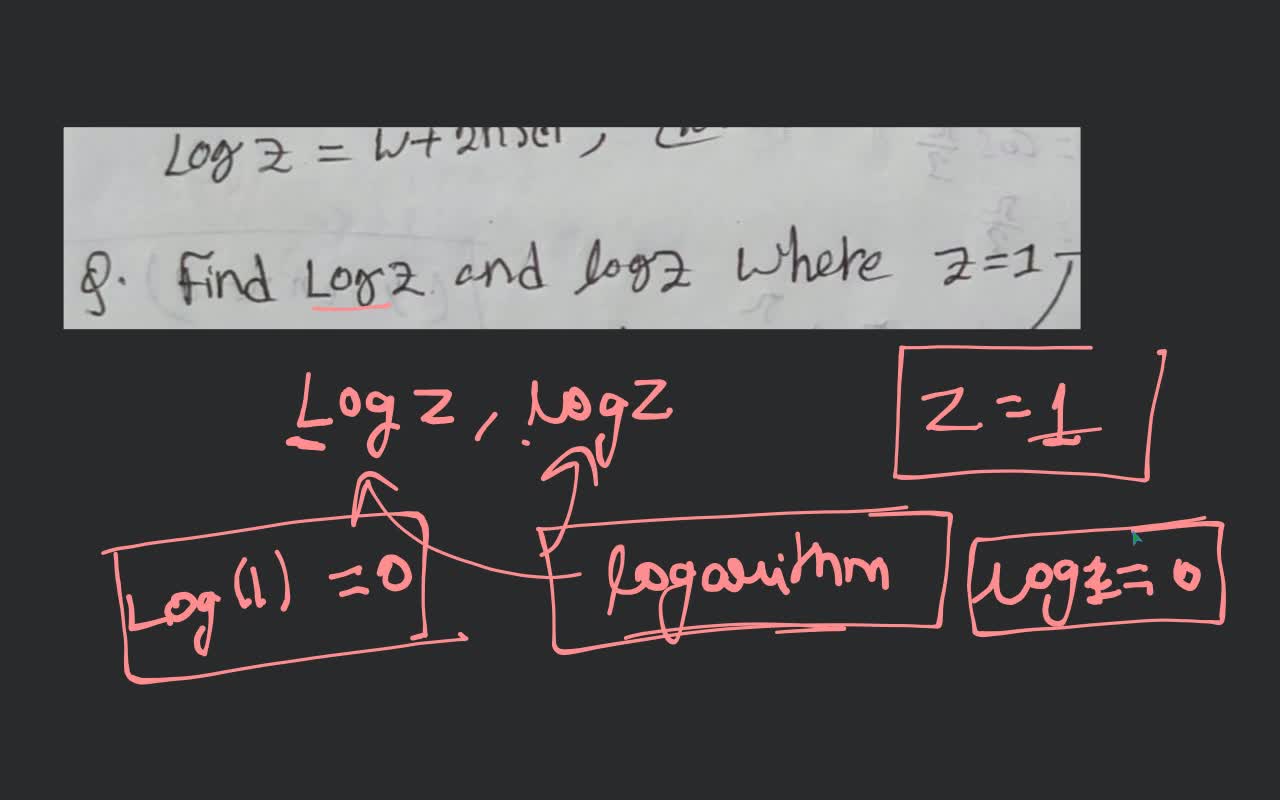 Log z = w + 2nπi,
Q. Find Log z and log z where z = 1,
Log z, log z
z = 1
Log(1) = 0
logarithm
log z = 0